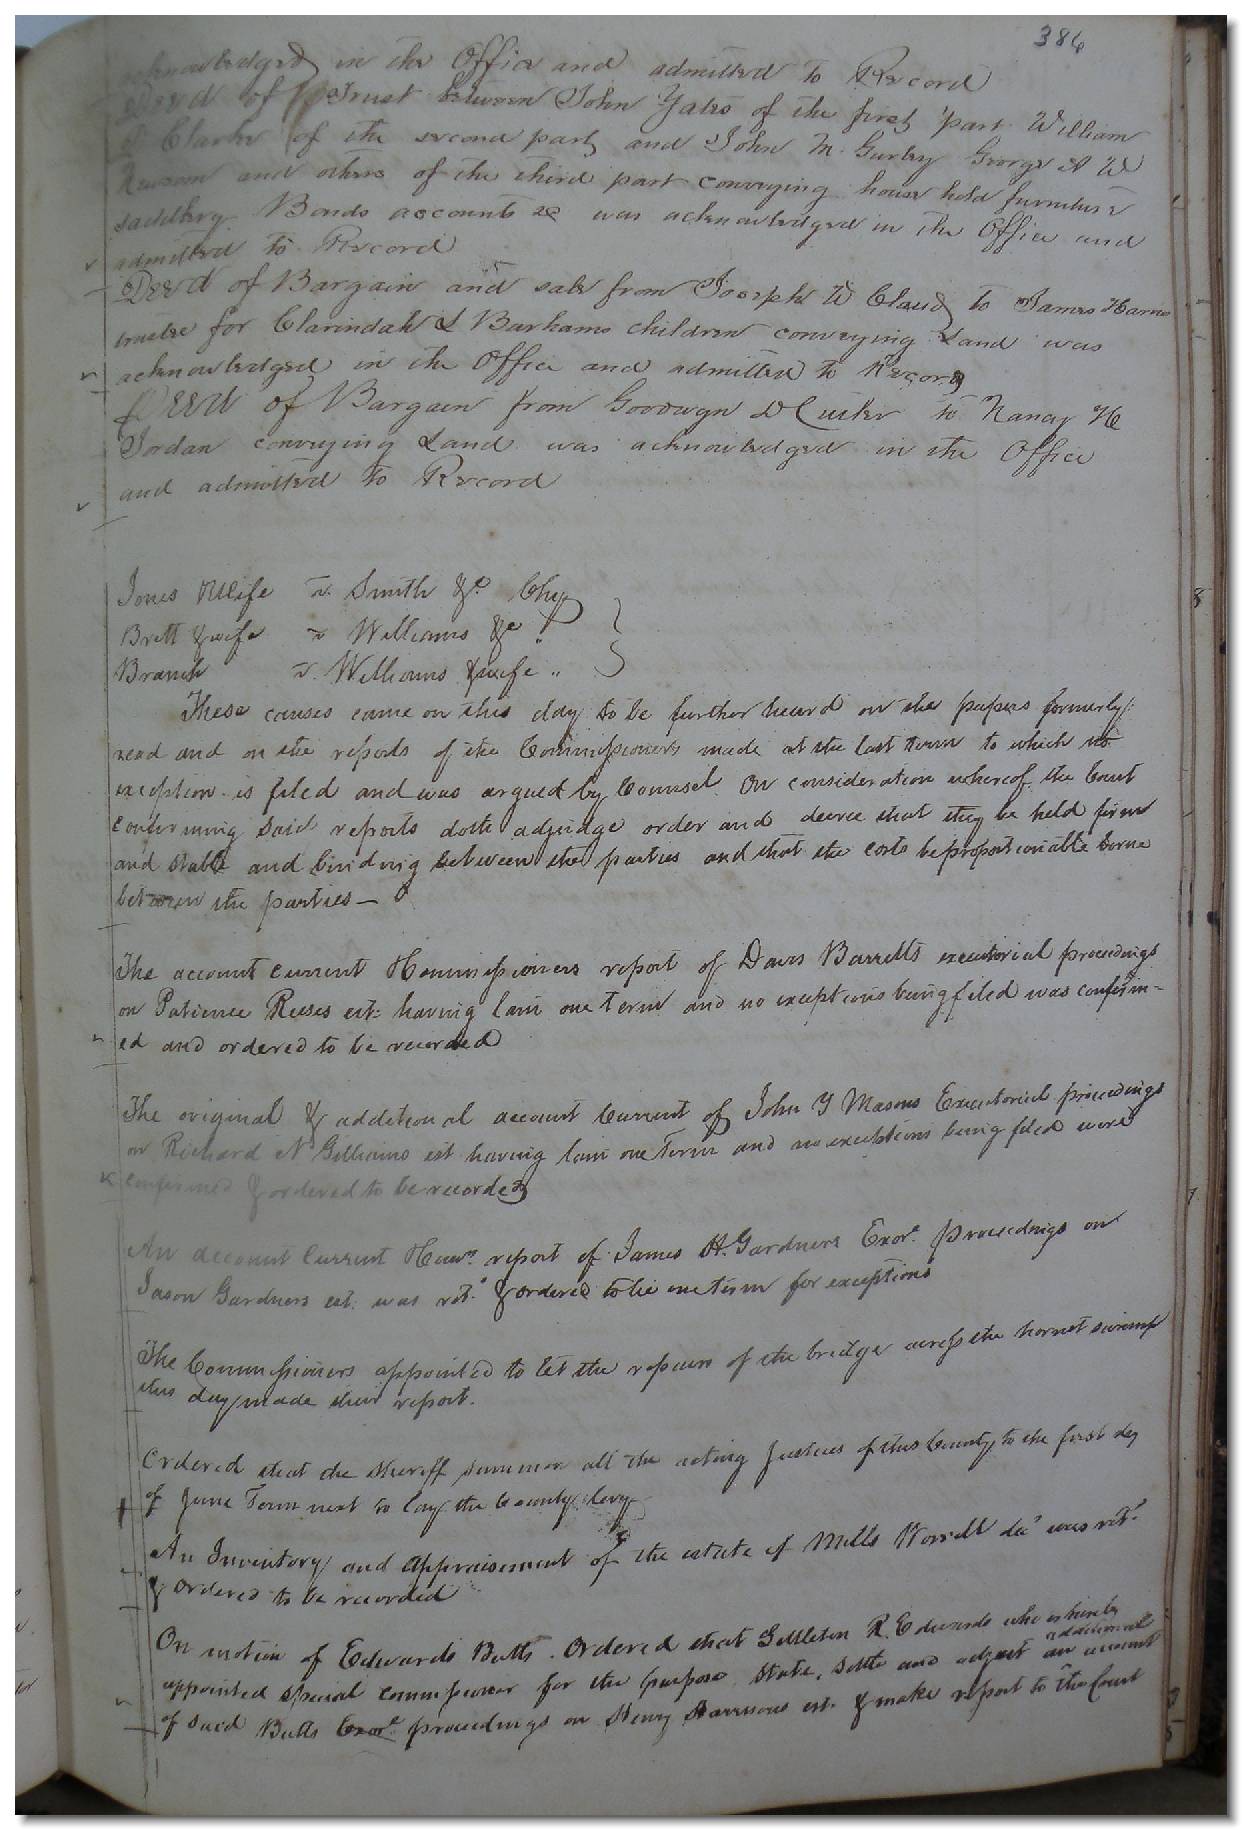 386
acknowledged in the Office and admitted to Record
Deed of Trust between John Yates of the first part William
Clarke of the second part and John M. Gurley George A W
Newsom and others of the third part conveying house hold furniture
saddlery Bonds accounts &c was acknowledged in the Office and
admitted to Record
Deed of Bargain and sale from Joseph W Claud to James Harris
trustee for Clarindah L Barhams children conveying Land was
acknowledged in the Office and admitted to Record
Deed of Bargain from Goodwyn to Nancy H
Jordan conveying Land was acknowledged in the Office
and admitted to Record
Jones & Wife v. Smith &c. Chy
Brett & wife v Williams &c "
Branch v. Williams & wife "
These causes came on this day to be further heard on the papers formerly
read and on the reports of the Commissioners made at the last term to which no
exception is filed and was argued by Counsel. On consideration whereof the Court
confirming said reports doth adjudge order and decree that they be held firm
and stable and binding between the parties and that the costs be proportionable borne
between the parties —
The account current & Commissioners report of Davis Barretts executorial proceedings
on Patience Reeses est: having lain one term and no exceptions being filed was confirm-
ed and ordered to be recorded
The original & additional account Current of John Y Masons Executorial proceedings
on Richard N Gilliams est having lain one Term and no exceptions being filed were
confirmed & ordered to be recorded
An account Current & Comrs. report of James H. Gardners Exor. proceedings on
Jason Gardners est. was retd. & ordered to lie one term for exceptions
The Commissioners appointed to let the repairs of the bridge across the hornet swamp
this day made their report.
Ordered that the Sheriff summon all the acting Justices of this County to the first day
of June Term next to lay the County levy
An Inventory and appraisement of the estate of Mills Worrell decd was retd.
& ordered to be recorded
On motion of Edwards Butts. Ordered that Littleton R. Edwards who is hereby
appointed special commissioner for the purpose, state, settle and adjust an additional account
of said Butts Exor. proceedings on Henry Harrisons est. & make report to the Court